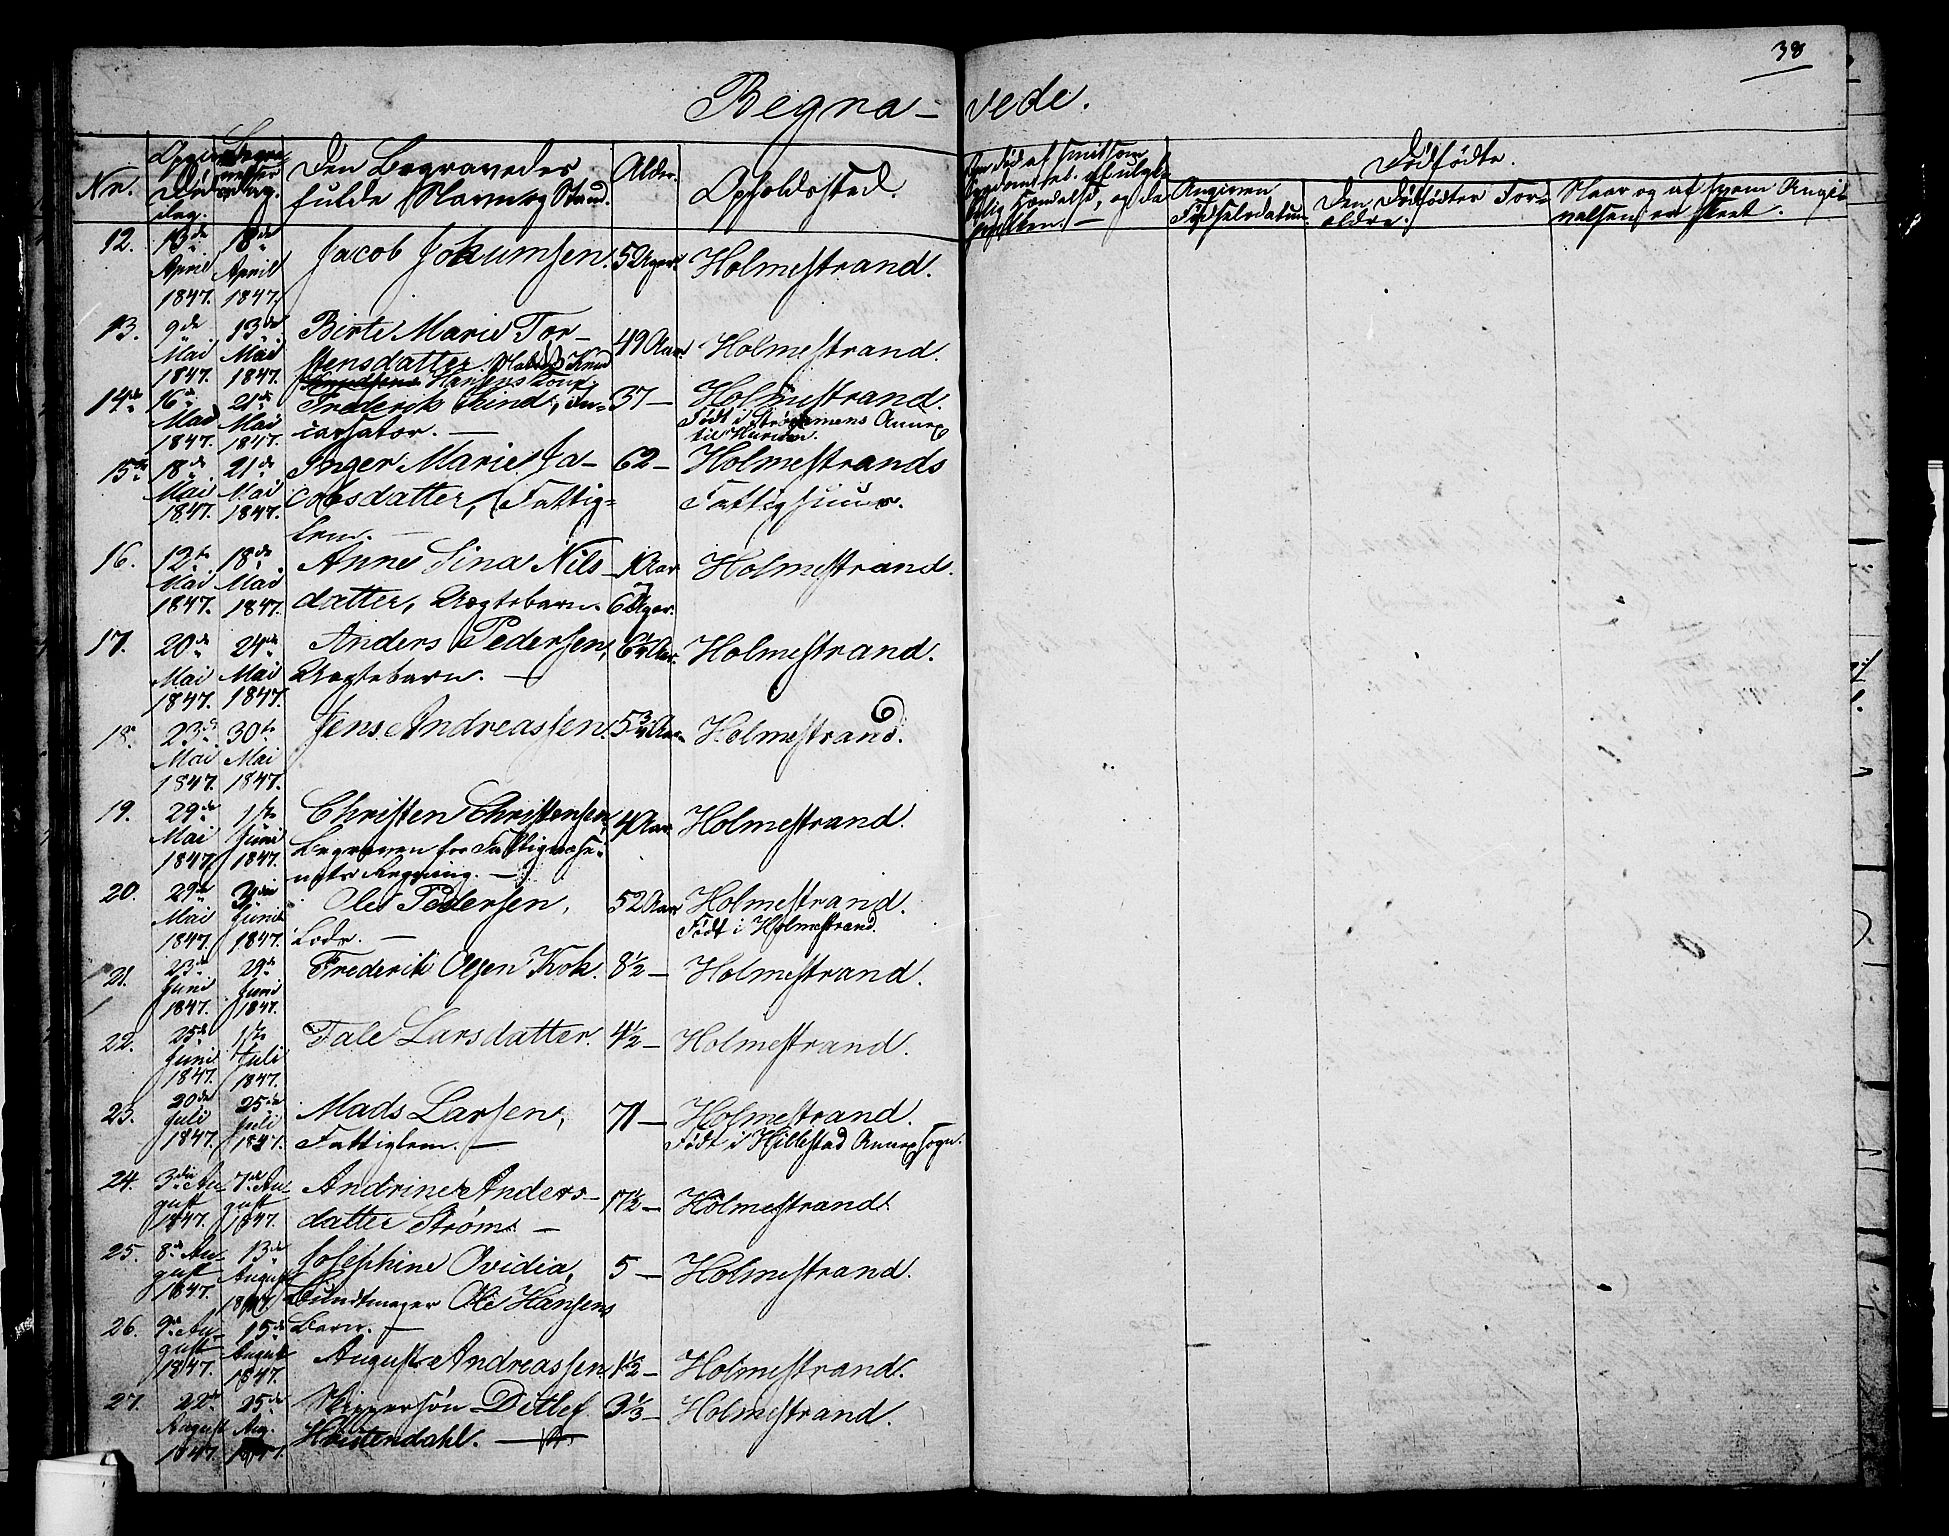 38
Begra-vede.
Nr.
Døds
dag.
Den Begravedes
fulde Navn og Stand.
Alder.
Opholdssted.
Dødfødte.
Angiven
Fødselsdatum.
Den Dødfødtes For-
ældre.
Naar og af hvem Angi-
velsen er skeet.
12. 13de April 1847. 18de April 1847. Jacob Jokumsen. 5 Uger. Holmestrand.
13. 9de Mai 1847. 13de Mai 1847. Birte Marie Tor-
stensdatter. Knud
Hansens Kone.
49 Aar. Holmestrand.
14de 16de Mai 1847. 21de Mai 1847. Frederik Lind, In-
cassator. —
37 — Holmestrand.
Født i Strømmens Annex
til Hurum.
15de 18de Mai 1847. 21de Mai 1847. Inger Marie Ja-
cobsdatter, Fattig-
lem. —
62 — Holmestrands
Fattighuus.
16. 12te Mai 1847. 18de Mai 1847. Anne Sina Nils-
datter, Uægtebarn.
1 Aar
6 Uger. Holmestrand.
17. 20de Mai 1847. 24de Mai 1847. Anders Pedersen,
Uægtebarn. —
Holmestrand.
18. 23de Mai 1847. 30te Mai 1847. Jens Andreassen. 5 3/4 Aar. Holmestrand.
19. 29de Mai 1847. 1ste Juni 1847. Christen Christensen,
Begraven for Fattigvæse-
nets Regning. —
4 Aar Holmestrand.
20. 29de Mai 1847. 3die Juni 1847. Ole Pedersen,
Lods. —
52 Aar Holmestrand.
Født i Holmestrand.
21. 23de Juni 1847. 29de Juni 1847. Frederik Olsen Kok. 8 1/2 — Holmestrand.
22. 25de Juni 1847. 1ste Juli 1847. Tale Larsdatter. 4 1/2 — Holmestrand.
23. 20de Juli 1847. 25de Juli 1847. Mads Larsen,
Fattiglem. —
71 — Holmestrand.
Født i Hillestad Annexsogn.
24. 3die August 1847. 7de August 1847. Andrine Anders-
datter Strøm. —
17 1/2 — Holmestrand.
25. 8de August 1847. 13de August 1847. Josephine Ovidia,
Bundtmager Ole Hansens
Barn. —
5 — Holmestrand.
26. 9de August 1847. 15de August 1847. August Andreassen 1 1/2 — Holmestrand.
27. 22de August 1847. 25de Aug. 1847. Skippersøn Ditlef
3 1/3 — Holmestrand.